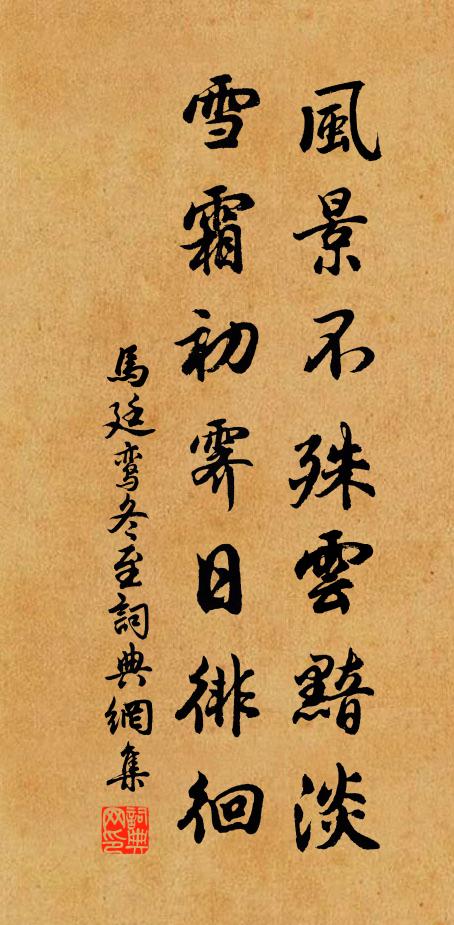 風景不殊雲黯淡
雪霜初霽日徘徊
馬廷鸾冬至詞典網集
詞典网印